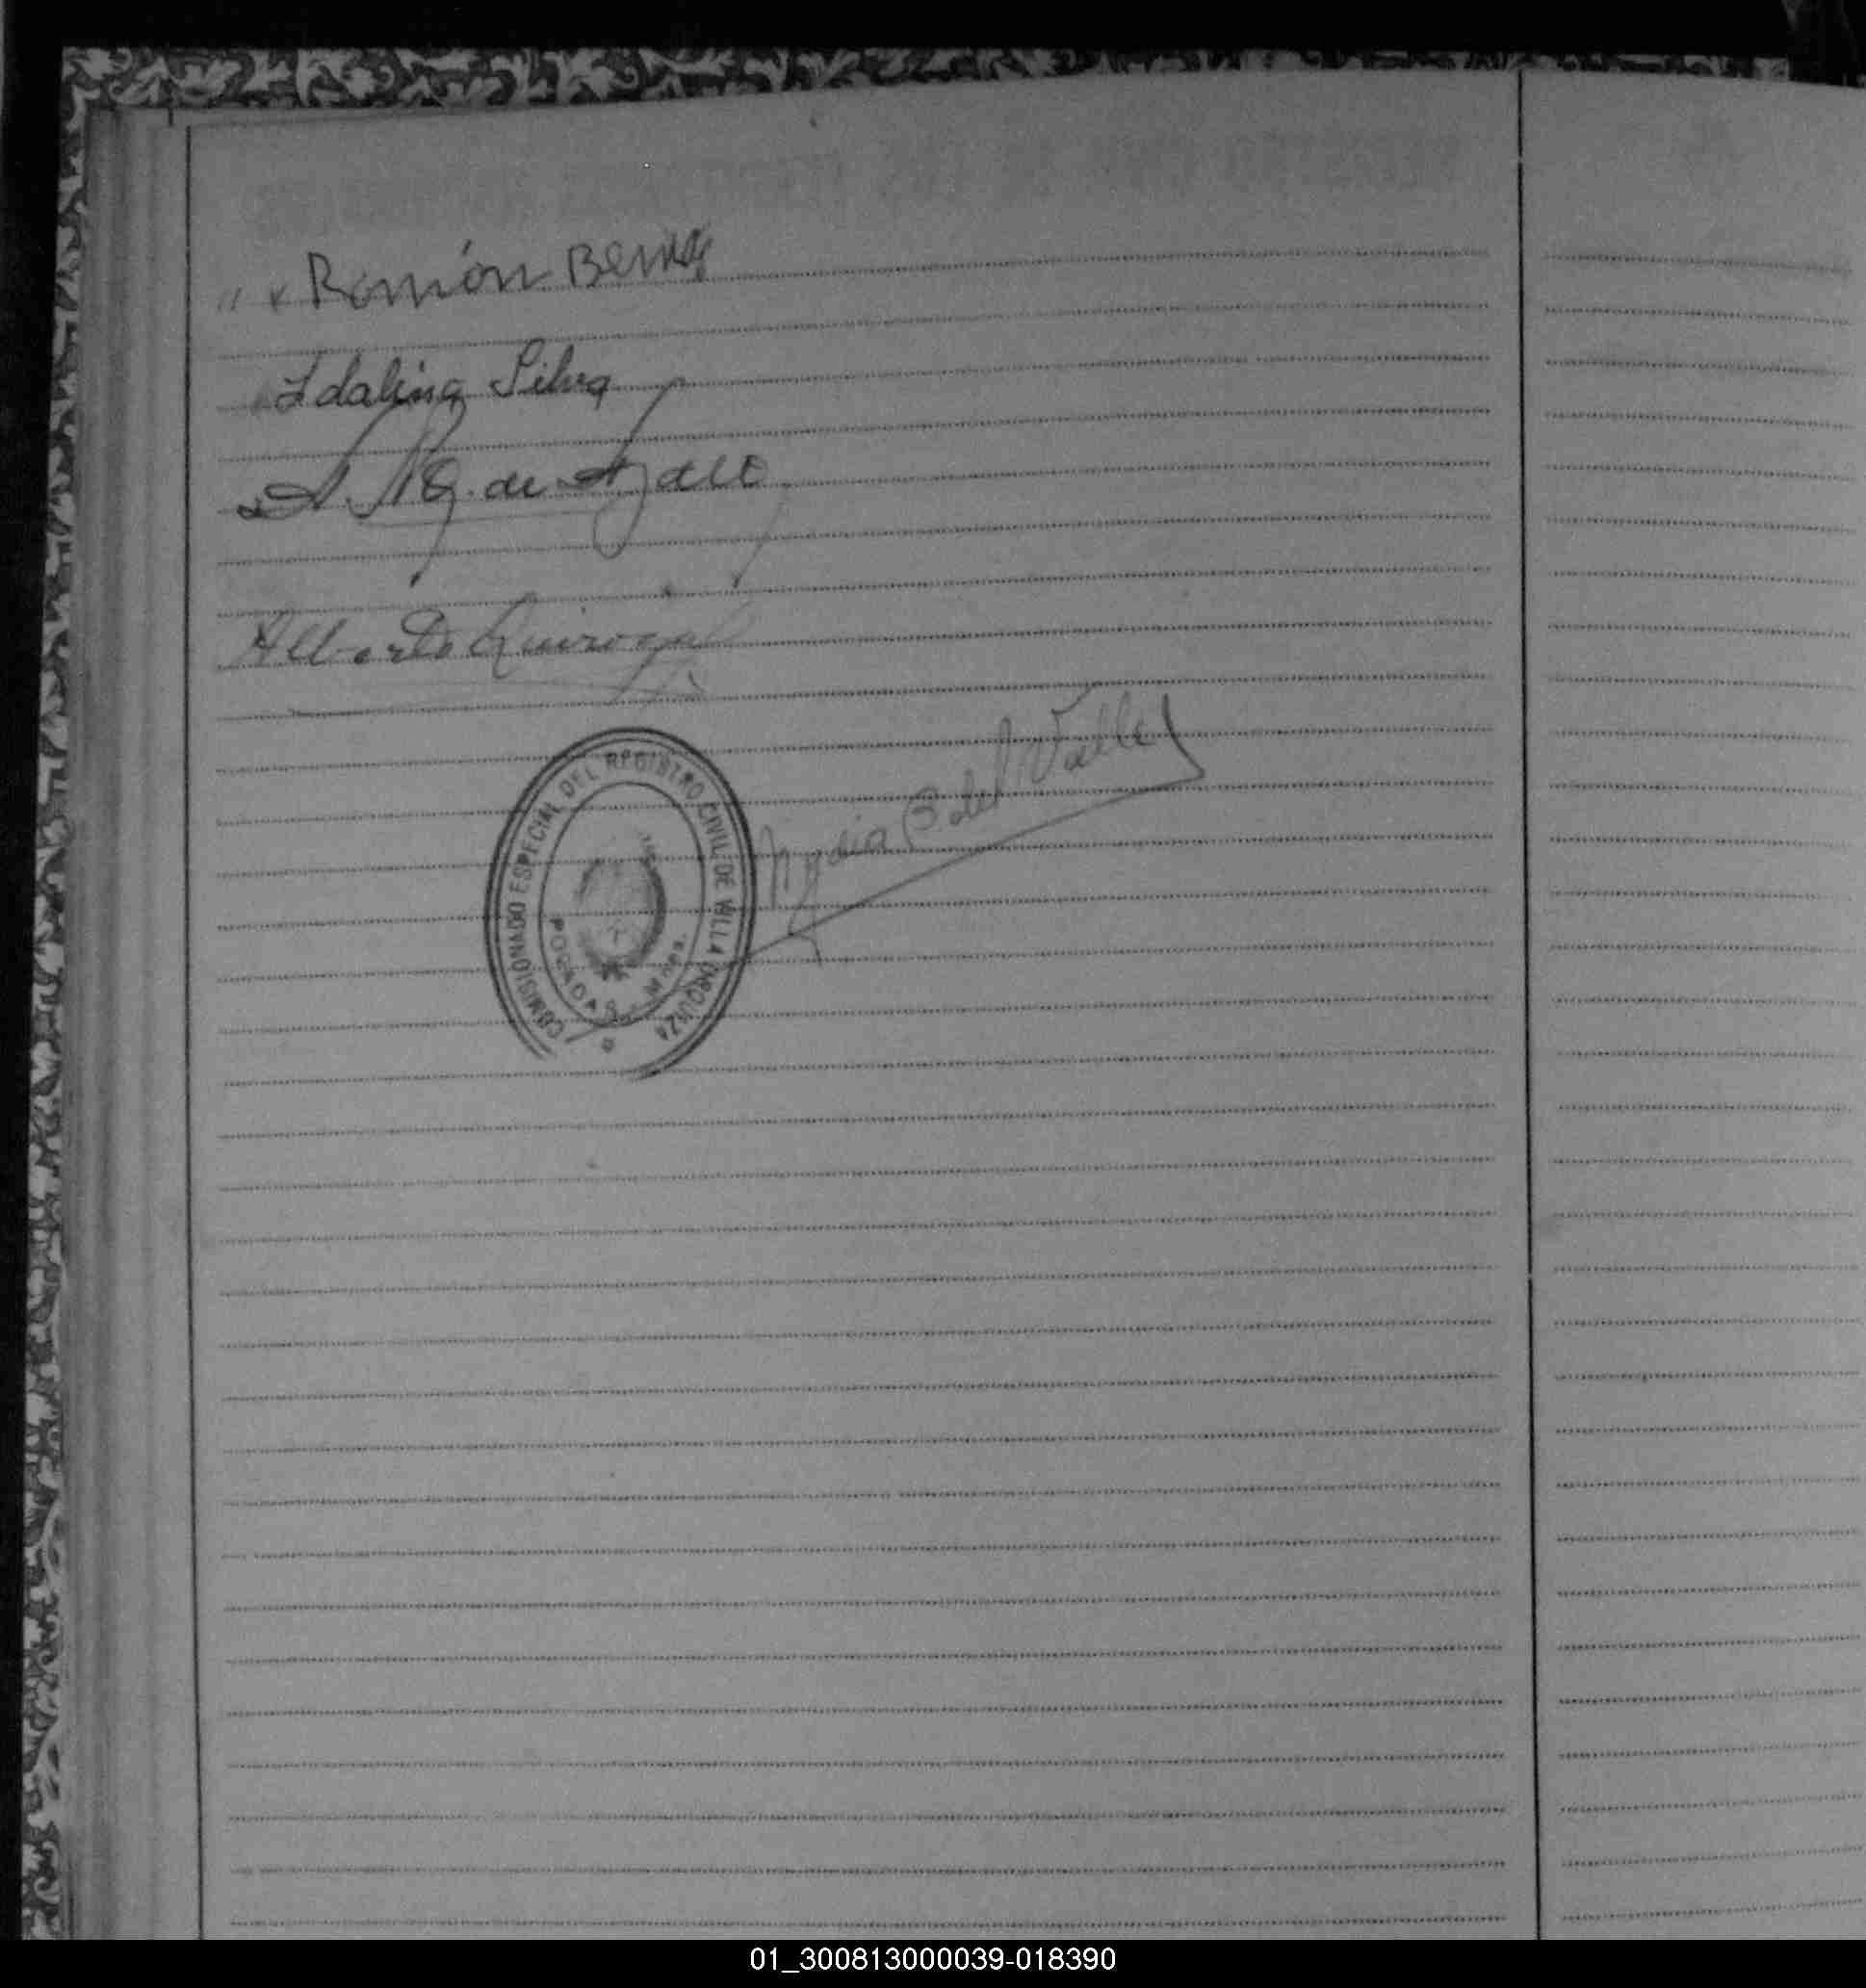 " " Ramón Bernal
Idalina Silva
A. N. Q. de
Alberto Quiroga
COMISIONADO ESPECIAL DEL REGISTRO CIVIL DE VILLA URQUIZA
POSADAS - Mnes.
del Valle
01_300813000039-018390